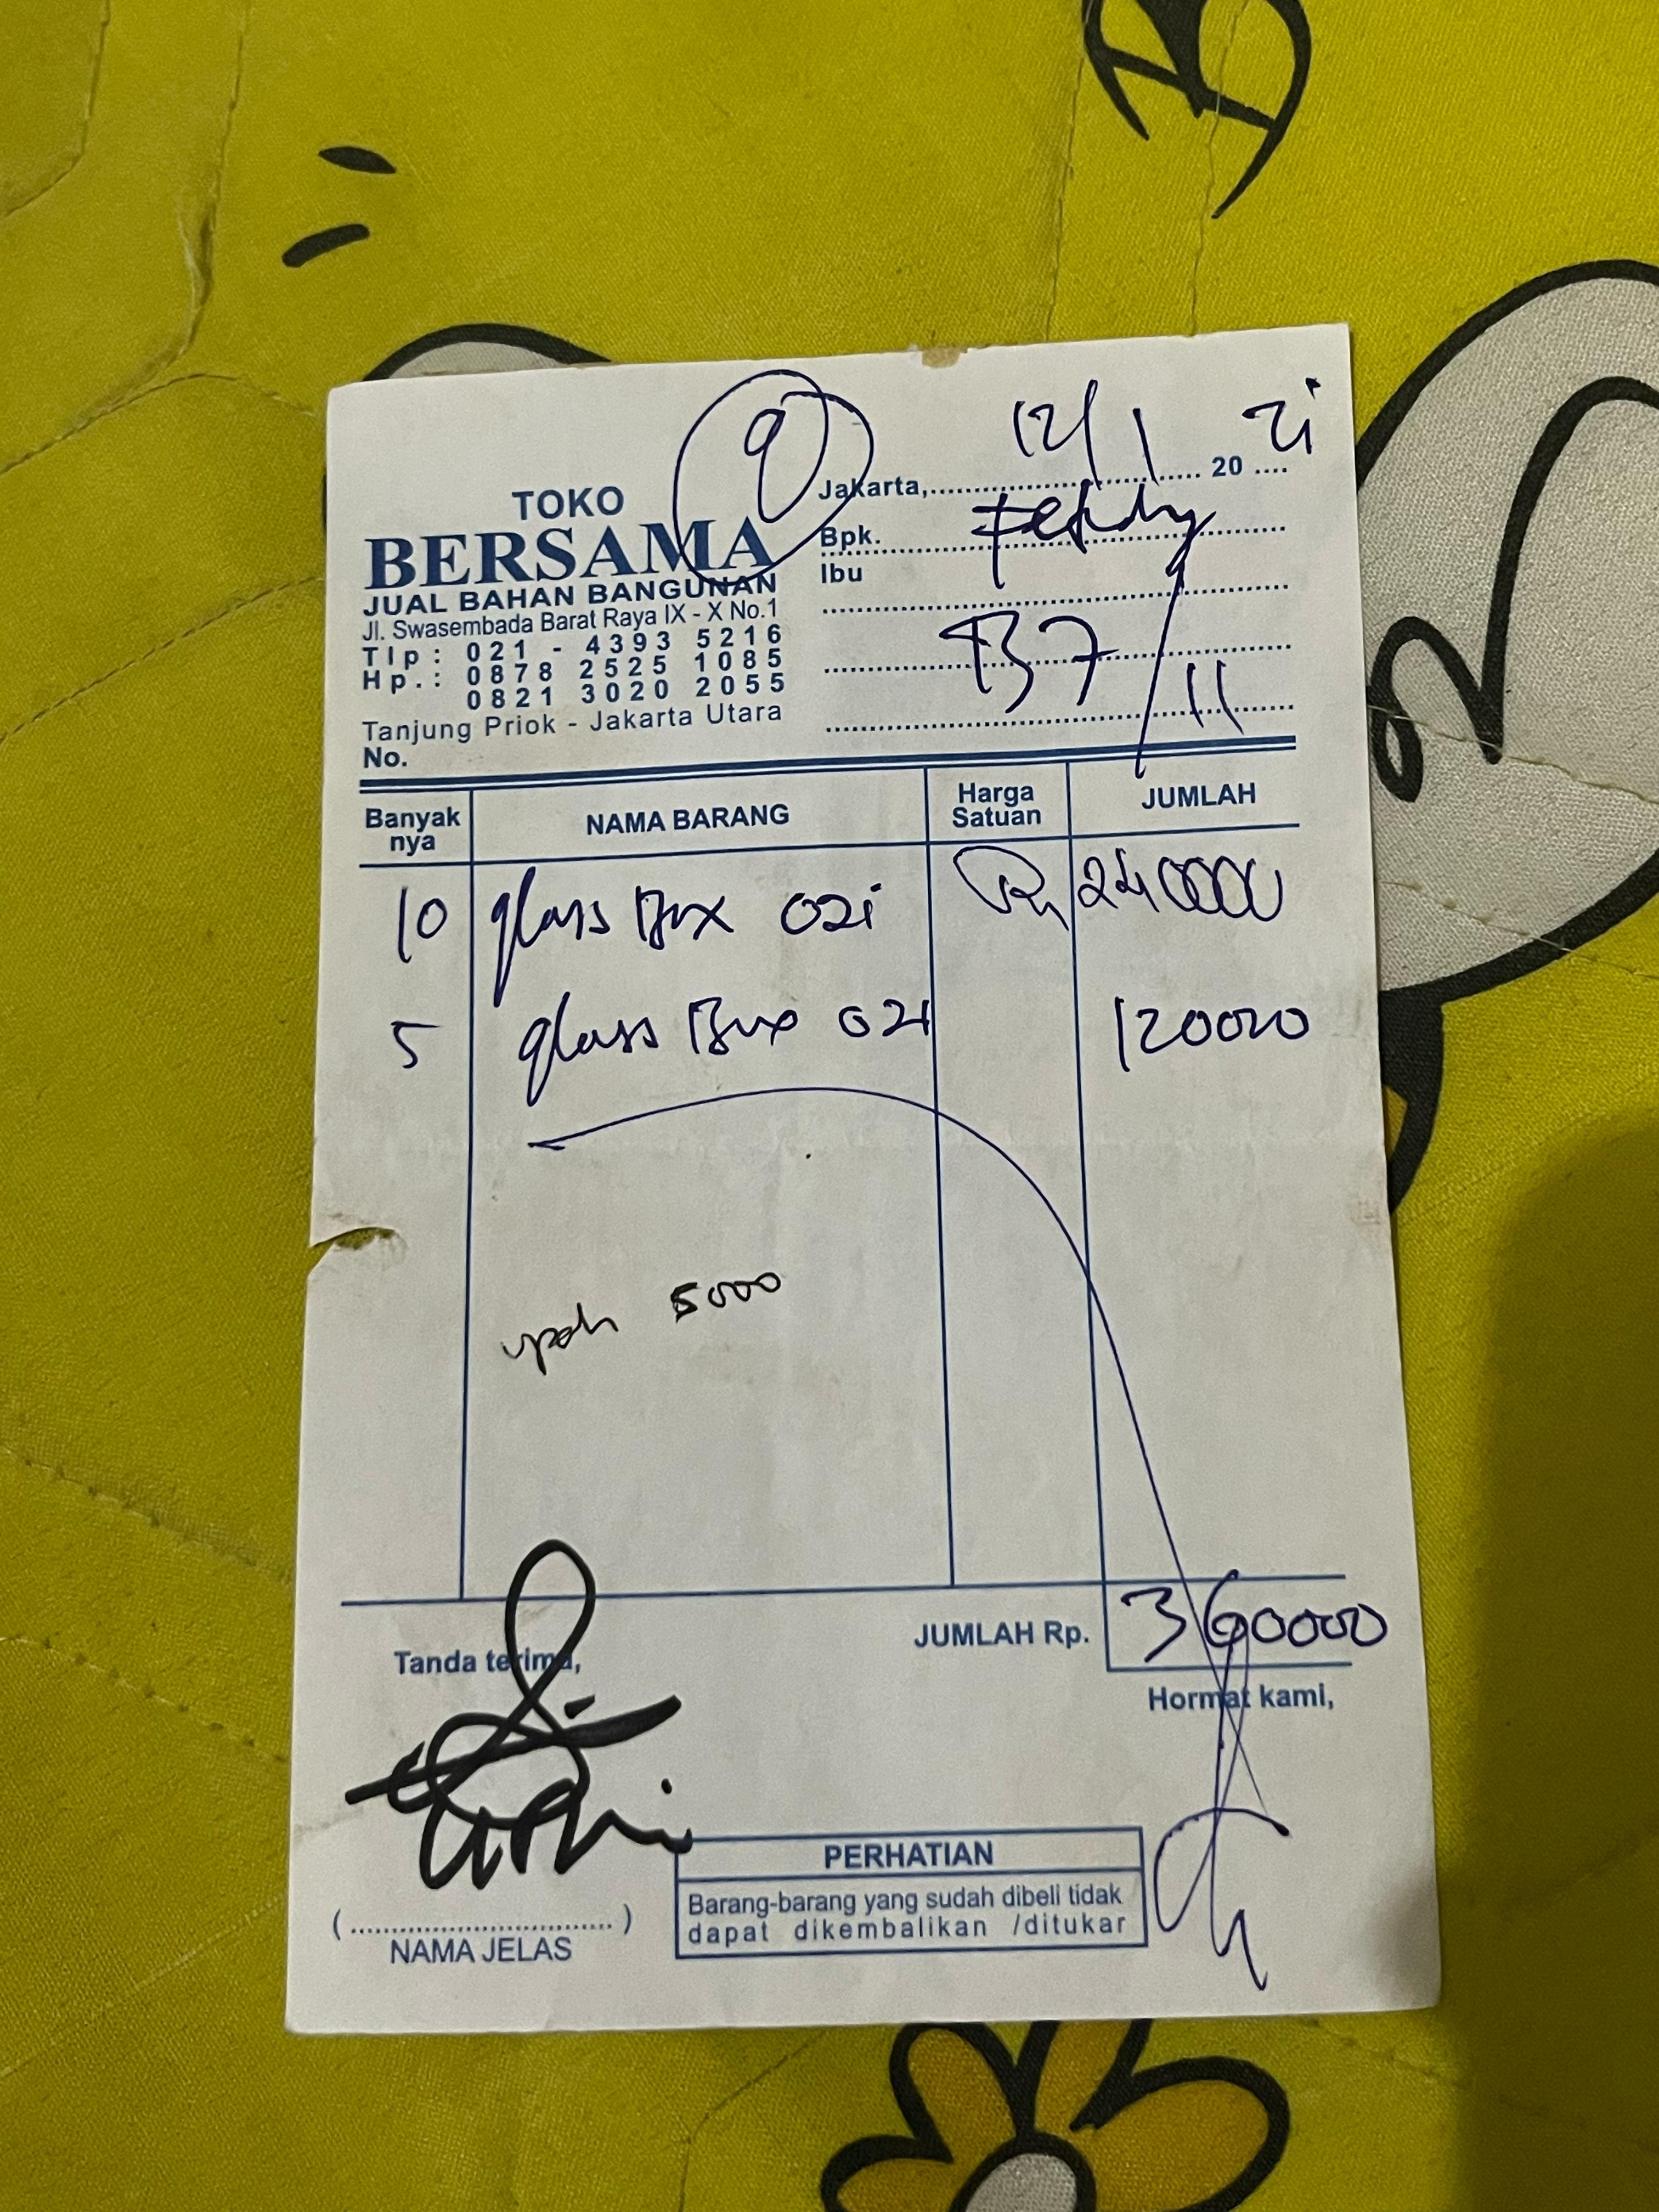 9
Jakarta, 12/1 20 21
TOKO
BERSAMA
JUAL BAHAN BANGUNAN
Jl. Swasembada Barat Raya IX - X No.1
Tlp : 021 - 4393 5216
Hp. : 0878 2525 1085
0821 3020 2055
Tanjung Priok - Jakarta Utara
No.
Bpk.
Ibu
B7/11
Banyak nya NAMA BARANG Harga Satuan JUMLAH
10 glass Box 021 Rp 240000
5 glass Box 021 120000
upah 5000
JUMLAH Rp. 360000
Tanda terima,
Hormat kami,
PERHATIAN
Barang-barang yang sudah dibeli tidak
dapat dikembalikan /ditukar
(.................................)
NAMA JELAS